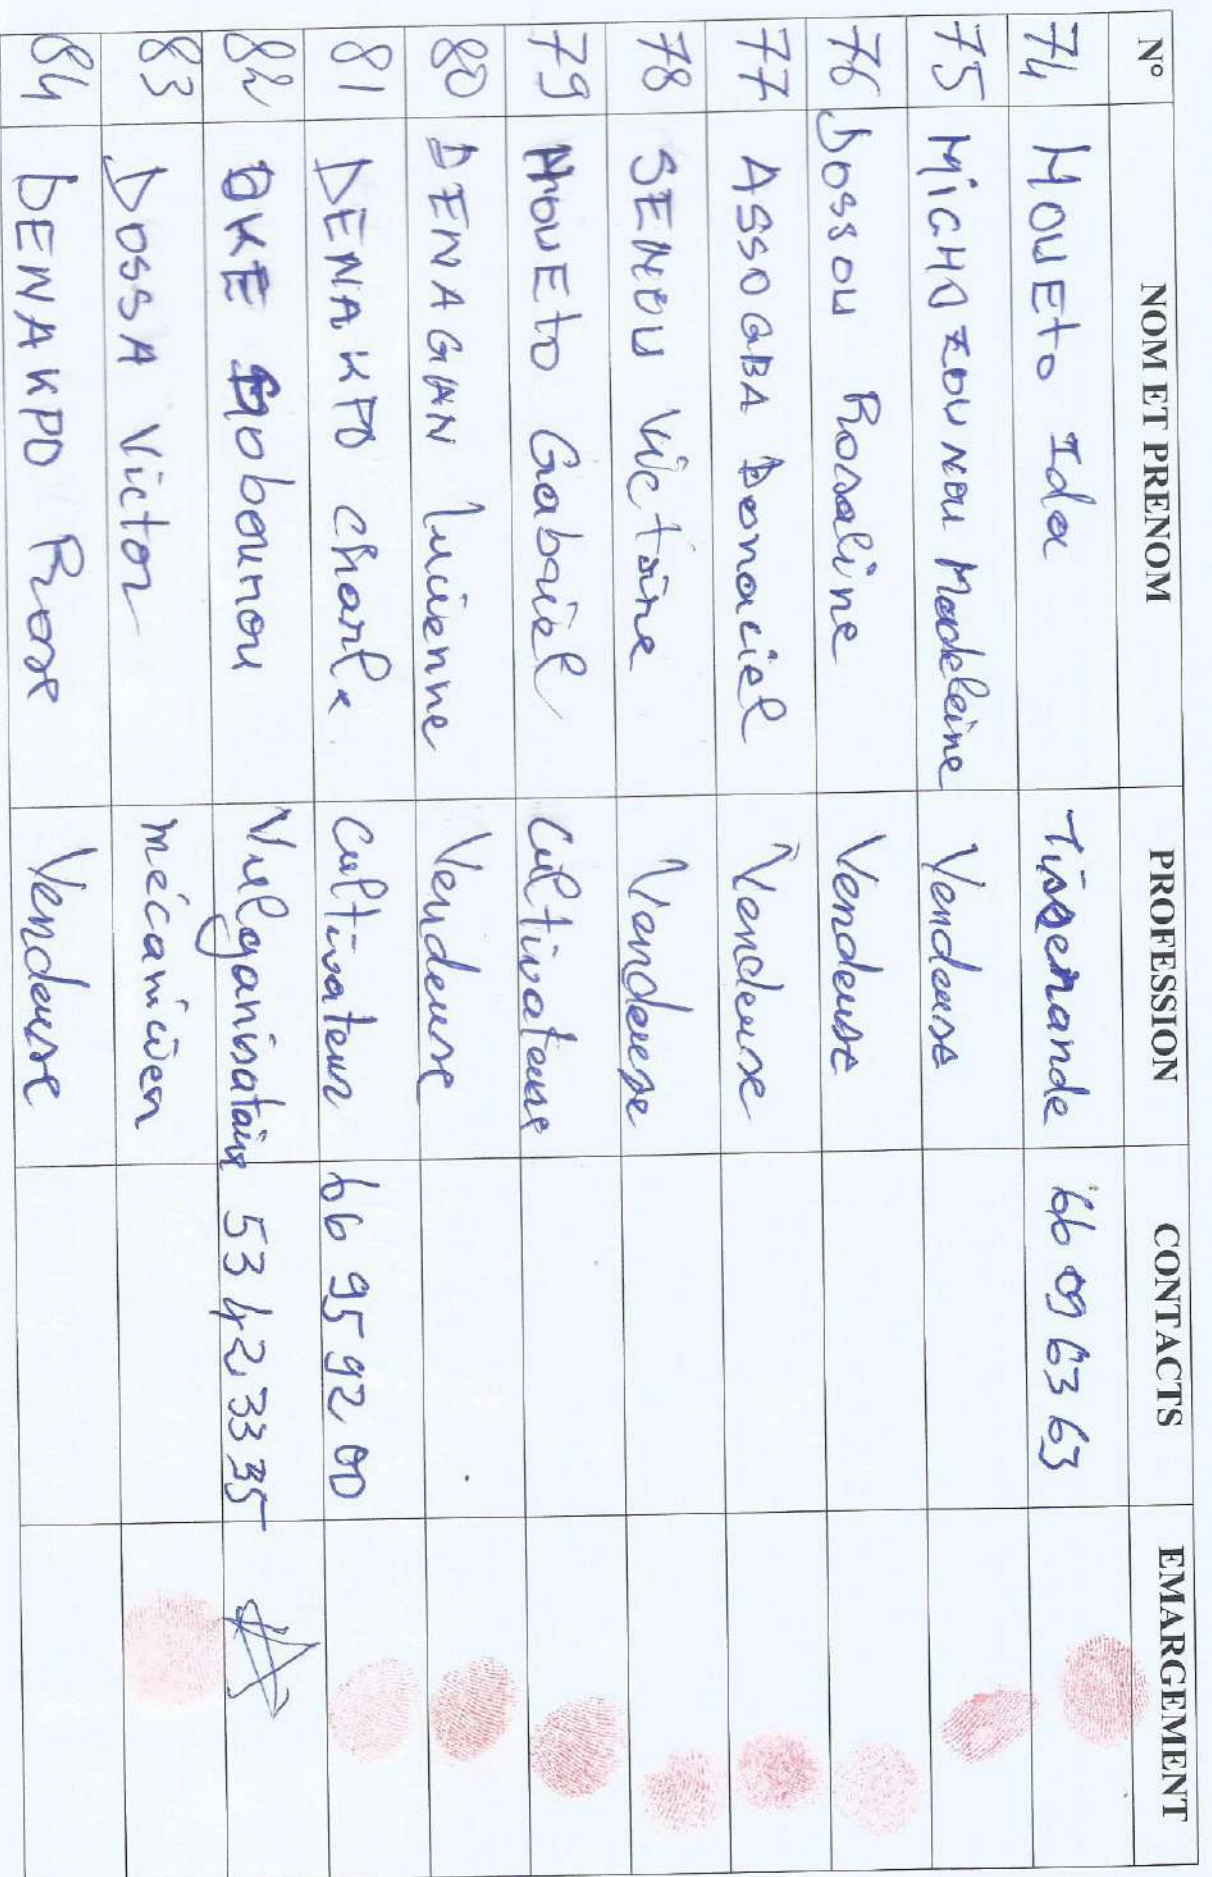 N° NOM ET PRENOM PROFESSION CONTACTS EMARGEMENT
74 HOUETO Ida Tisserande 66 09 63 63
75 MICHOZOUNOU Madeleine Vendeuse
76 Dossou Rosaline Vendeuse
77 ASSOGBA Donaciel Vendeuse
78 SENOU Victoire Vendeuse
79 HOUETO Gabriel Cultivateur
80 DENAGAN Lucienne Vendeuse
81 DENAKPO Charle Cultivateur 66 95 92 00
82 OKE Vulgarisateur 53 42 33 35
83 DOSSA Victor mécanicien
84 DENAKPO Rose Vendeuse